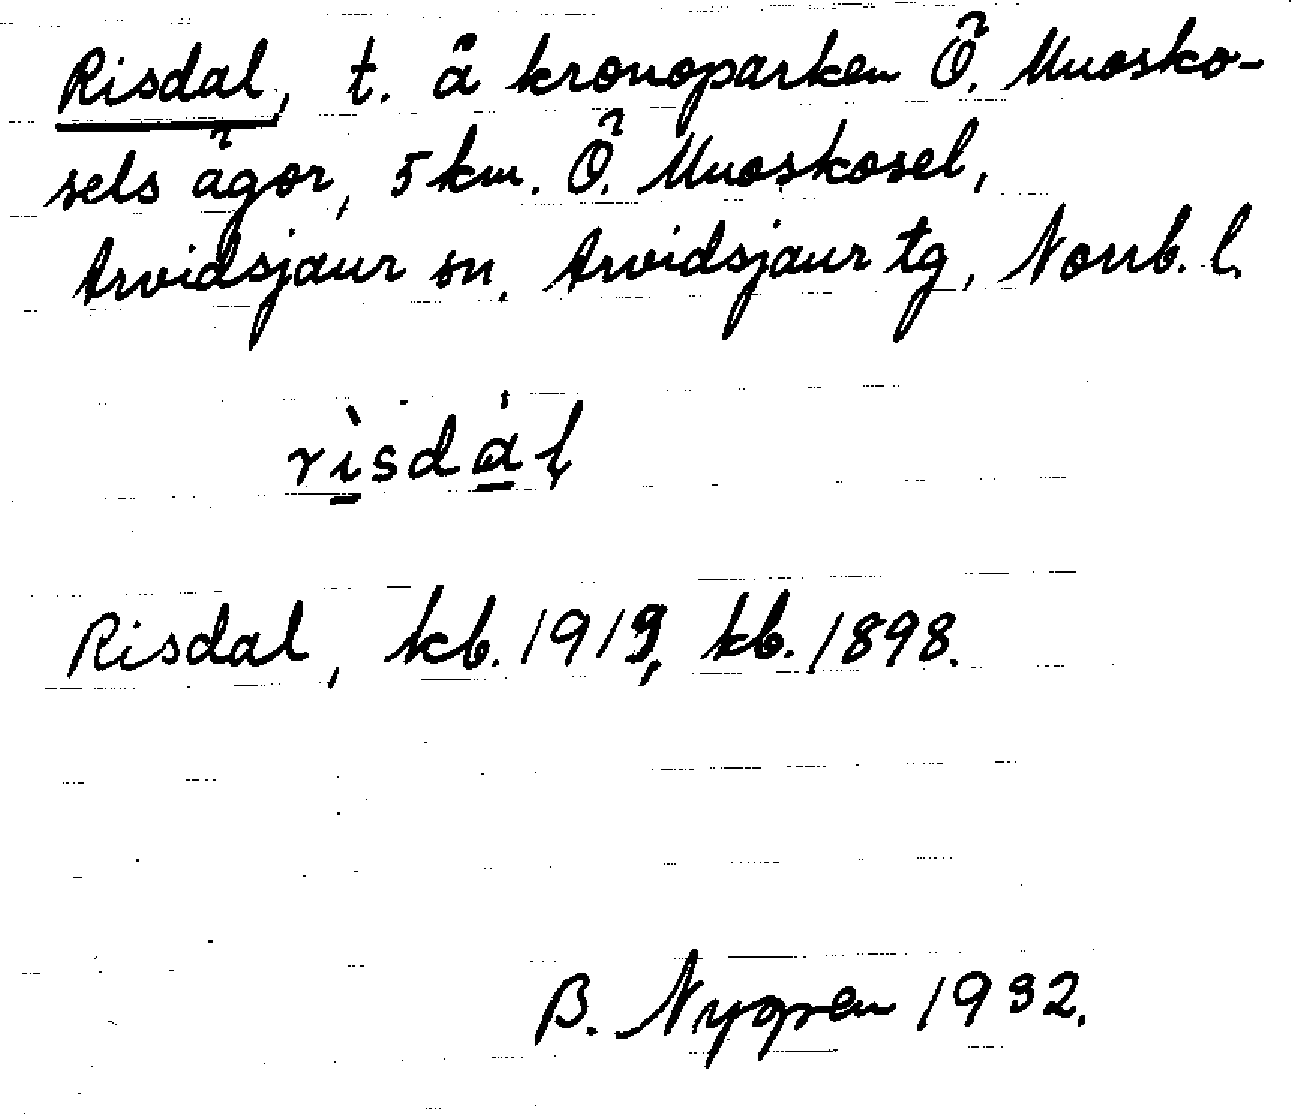 Risdal, t. å kronoparken Ö. Muosko-
sels ägor, 5 km. Ö. Muoskosel,
Arvidsjaur sn. Arvidsjaur tg, Norrb. l.
rìsdál
Risdal, kb. 1919, kb. 1898.
B. Nygren 1932.